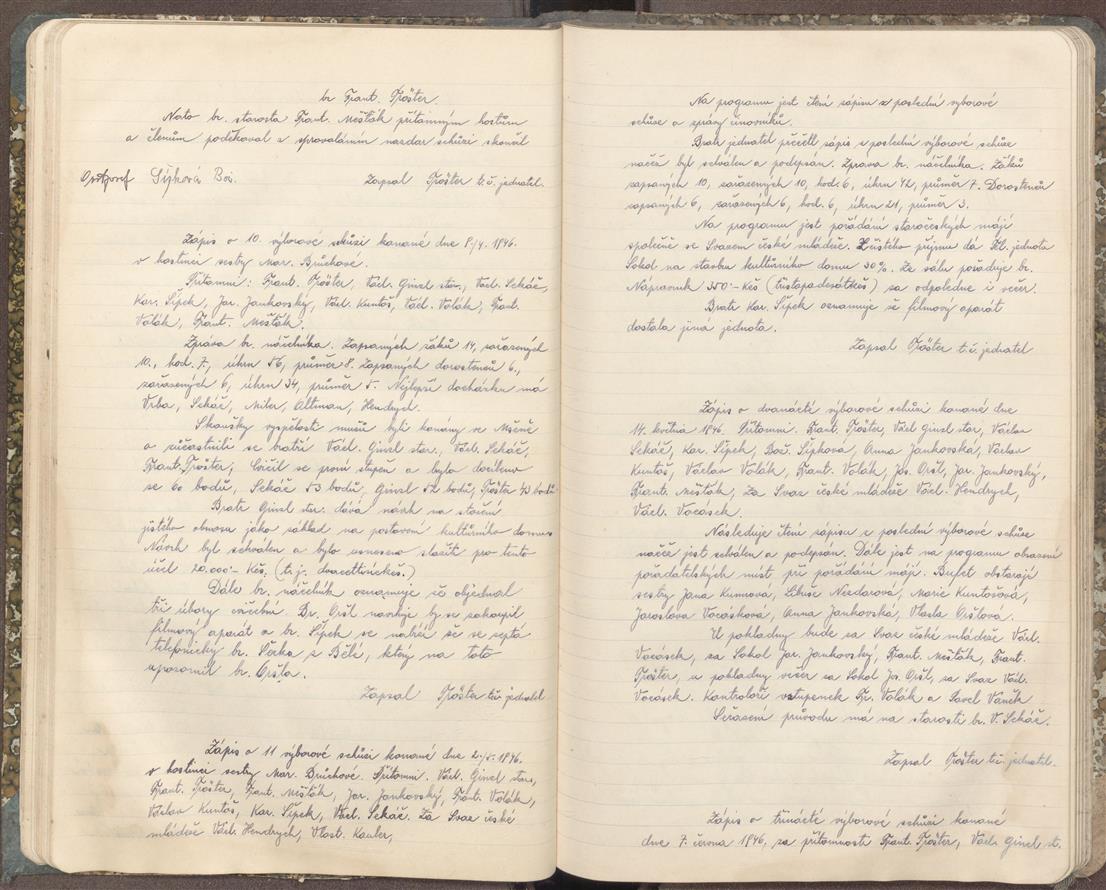 br Frant. Tröster.
Nato br. starosta Frant. Mešťák přítomným hostům
a členům poděkoval a sprovoláním nazdar schůzi skončil
Šípková Bož. Zapsal Tröster t.č. jednatel.
Zápis o 10. výborové schůzi konané dne 8./4. 1946.
v hostinci sestry Mar. Brůchové.
Přítomni: Frant. Tröster, Václ. Ginzl star., Václ. Sekáč,
Kar. Šípek, Jar. Jankovský, Václ. Kuntoš, Václ. Volák, Frant.
Volák, Frant. Mešťák.
Zpráva br. náčelníka. Zapsaných žáků 14, zařazených
10., hod. 7, úhrn 56, průměr 8. Zapsaných dorostenců 6.,
zařazených 6, úhrn 34, průměr 5. Nejlepší docházku má
Vrba, Sekáč, Miler, Altman, Hendrych.
Zkoušky vyspělosti mužů byli konány ve Mšeně
a zúčastnili se bratři Václ. Ginzl star., Václ. Sekáč,
Frant. Tröster; Cvičil se první stupen a bylo docíleno
ze 60 bodů, Sekáč 53 bodů, Ginzl 52 bodů, Tröster 43 bodů
Bratr Ginzl star. dává návrh na složení
jistého obnosu jako základ na postavení kulturního domova
Návrh byl schválen a bylo usneseno složiti pro tento
účel 20.000·- Kčs, (t.j. dvacettisíckčs.)
Dále br. náčelník oznamuje že objednal
tři úbory cvičební. Br. Oršl navrhuje by se zakoupil
filmový aparát a br. Šípek se nabízí že se zeptá
telefonicky br. Sírka z Bělé, který na toto
upozornil br. Oršla.
Zapsal Tröster t.č. jednatel
Zápis o 11 výborové schůzi konané dne 2./5. 1946.
v hostinci sestry Mar. Brůchové. Přítomni. Václ. Ginzl star.,
Frant. Tröster, Frant. Mešťák, Jar. Jankovský, Frant. Volák,
Václav Kuntoš, Kar. Šípek, Václ. Sekáč. Za Svaz české
mládeže Václ. Hendrych, Vlast. Kauler,
Na programu jest čtení zápisu z poslední výborové
schůze a zprávy činovníků.
Bratr jednatel přečetl zápis z poslední výborové schůze
načež byl schválen a podepsán. Zpráva br. náčelníka. Žáků
zapsaných 10, zařazených 10, hod. 6, úhrn 42, průměr 7. Dorostenců
zapsaných 6, zařazených 6, hod. 6, úhrn 21, průměr 3.
Na programu jest pořádání staročeských májí
společně se Svazem české mládeže. Z čistého příjmu dá Těl. jednota
Sokol na stavbu kulturního domu 30%. Ze sálu požaduje br.
Nápravník 350·- Kčs (třistapadesátkčs) za odpoledne i večer.
Bratr Kar. Šípek oznamuje že filmový aparát
dostala jiná jednota.
Zapsal Tröster t.č. jednatel
Zápis o dvanácté výborové schůzi konané dne
14. května 1946. Přítomni. Frant. Tröster, Václ Ginzl star, Václav
Sekáč, Kar. Šípek, Bož. Šípková, Anna Jankovská, Václav
Kuntoš, Václav Volák, Frant. Volák, Jos. Oršl, Jar. Jankovský,
Frant. Mešťák, Za Svaz české mládeže Václ. Hendrych,
Václ. Vocásek.
Následuje čtení zápisu z poslední výborové schůze
načež jest schválen a podepsán. Dále jest na programu obsazení
pořadatelských míst při pořádání májí. Bufet obstarají
sestry Jana Kunnova, Libuše Nezdarová, Marie Kuntošová,
Jaroslava Vocásková, Anna Jankovská, Vlasta Oršlová.
U pokladny bude za Svaz české mládeže Václ.
Vocásek, za Sokol Jar. Jankovský, Frant. Mešťák, Frant.
Tröster, u pokladny večer za Sokol Jos. Oršl, za Svaz Václ.
Vocásek. Kontroloři vstupenek Fr. Volák a Pavel Vaněk
Seřazení průvodu má na starosti br. V. Sekáč.
Zapsal Tröster t.č. jednatel.
Zápis o třinácté výborové schůzi konané
dne 7. června 1946, za přítomnosti Frant. Tröster, Václ. Ginzl st.